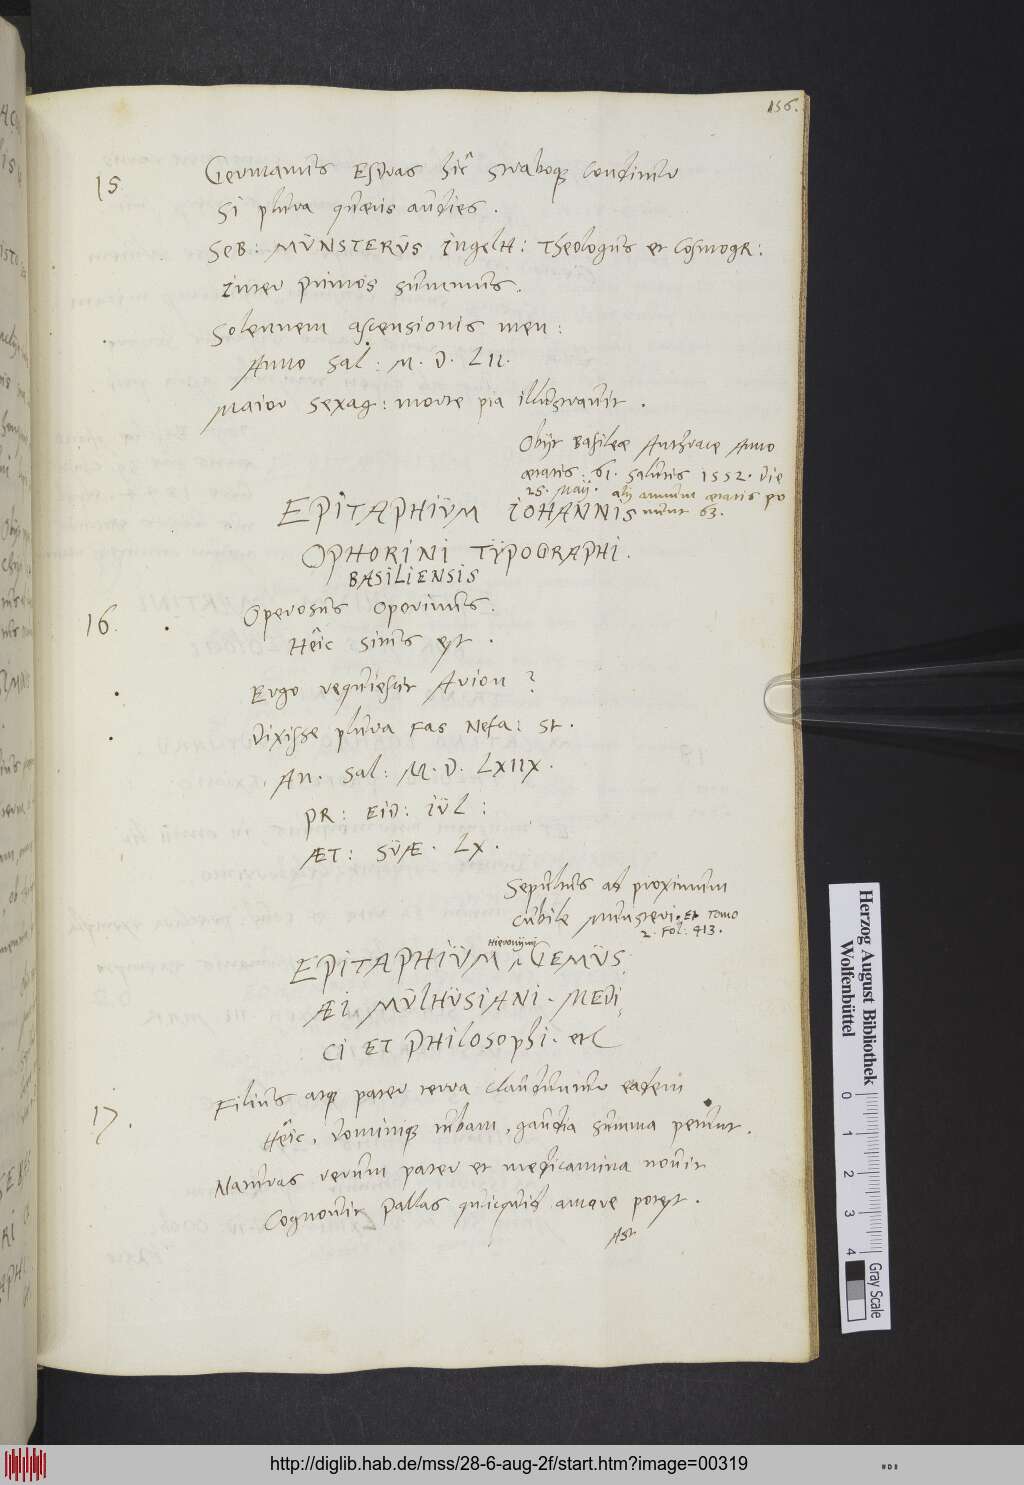 156.
15
Germanus Esdras hîc Straboque conditur
Si plura quæris audies.
SEB: MÜNSTERÜS IngelH: Theologus et CosmogR:
Inter primos summus.
Solennem ascensionis mem:
Anno Sal: M. D. LII.
Maior Sexag: morte pia illustravit.
Obijt Basileæ Anthrace Anno
ætatis: 61. Salutis 1552. die
25. Maij. alij annum ætatis po
nunt 63.
EPITAPHIÜM IOHANNIS
OPHORINI TŸPOGRAPHI.
BASILIENSIS
16.
Operosus Operinus.
Hêic situs est.
Ergo requiescit Arion?
Dixisse plura Fas Nefa: st.
An. Sal: M. D. LXIIX.
PR: EID: IÜL:
ÆT: SÜÆ. LX.
Sepultus ad proximum
cubile Munsteri. Et Tomo
2. Fol: 413.
EPITAPHIÜM Hieronijmi GEMÜS,
ÆI MÜLHÜSIANI. MEDI,
CI ET PHILOSOPhi. etc
17.
Filius atque pater terra clauduntur eadem
Hêic, Dominique tubam, gaudia summa petunt.
Naturas rerum pater et medicamina novit
Cognovit Pallas quicquid amare potest.
Ast
Herzog August Bibliothek
Wolfenbüttel
0 1 2 3 4
Gray Scale
http://diglib.hab.de/mss/28-6-aug-2f/start.htm?image=00319